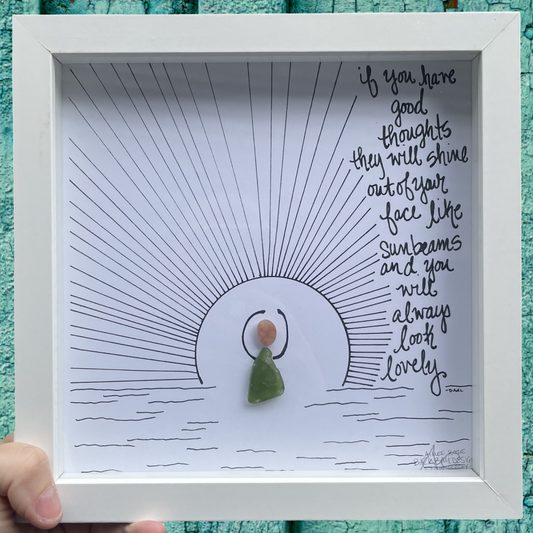 if you have
good
thoughts
they will shine
out of your
face like
sunbeams
and you
will
always
look
lovely.